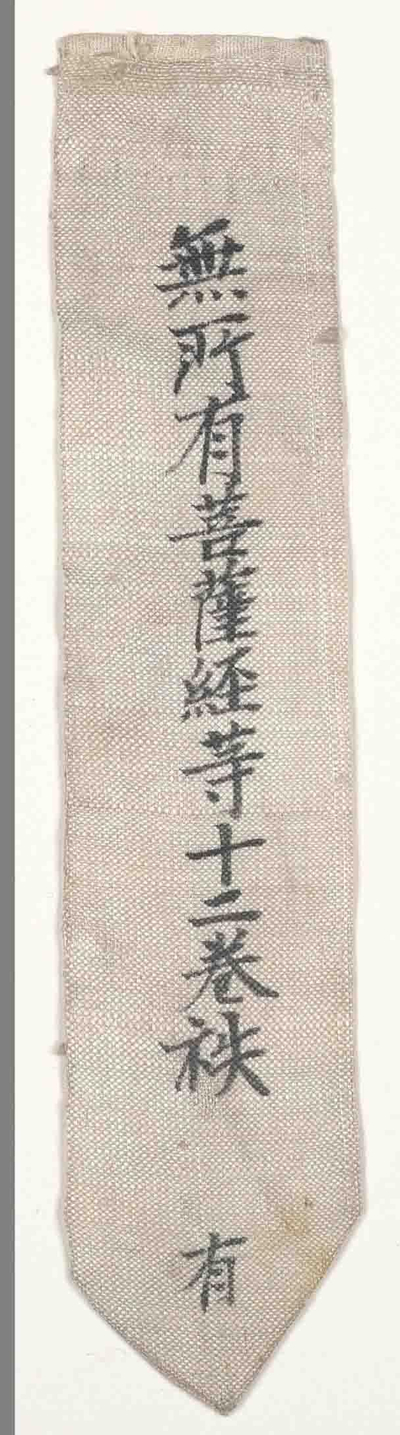 無所有菩薩經等十二卷袟
有